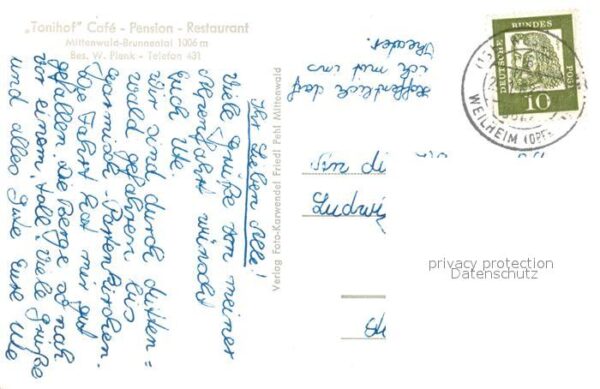 „Tonihof" Café - Pension - Restaurant
Mittenwald-Brunnental 1006 m
Bes. W. Plenk - Telefon 431
Ihr lieben Alle!
Viele Grüße von meiner
Ferienfahrt wünscht
Euch Ute
Wir sind durch Mitten=
wald gefahren bis
Garmisch-Partenkirchen.
Die Fahrt hat mir gut
gefallen. Die Berge so nah
vor einem, toll! Viele Grüße
und alles Gute Eure Ute
Hoffentlich darf
ich mit ins
Theater.
Verlag Foto-Karwendel Friedl Pehl Mittenwald
DEUTSCHE BUNDESPOST
10
WEILHEIM (OBB
Ludwi
privacy protection
Datenschutz